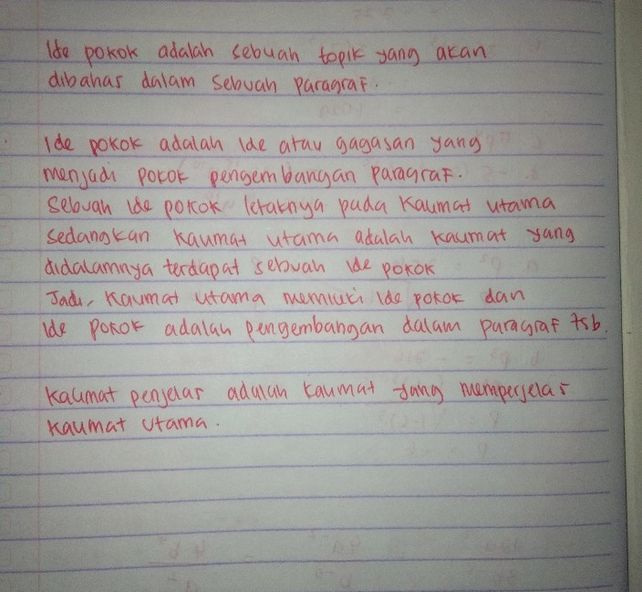 Ide pokok adalah sebuah topik yang akan
dibahas dalam sebuah paragraf.
Ide pokok adalah ide atau gagasan yang
menjadi pokok pengembangan paragraf.
Sebuah ide pokok letaknya pada kalimat utama
sedangkan kalimat utama adalah kalimat yang
didalamnya terdapat sebuah ide pokok
Jadi, kalimat utama memiliki ide pokok dan
ide pokok adalah pengembangan dalam paragraf tsb.
Kalimat penjelas adalah kalimat yang memperjelas
kalimat utama.